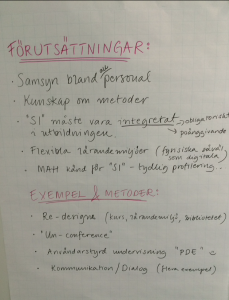 FÖRUTSÄTTNINGAR:
· Samsyn bland all personal
· Kunskap om metoder
· "SI" måste vara integrerat → obligatoriskt
i utbildningen → poänggivande
· Flexibla lärandemiljöer (fysiska såväl
som digitala)
· MAH känd för "SI" - tydlig profilering.
EXEMPEL & METODER:
· Re-designa (kurs, lärandemiljö, biblioteket)
· "Un-conference"
· Användarstyrd undervisning "PDE"
· Kommunikation/Dialog (flera exempel)